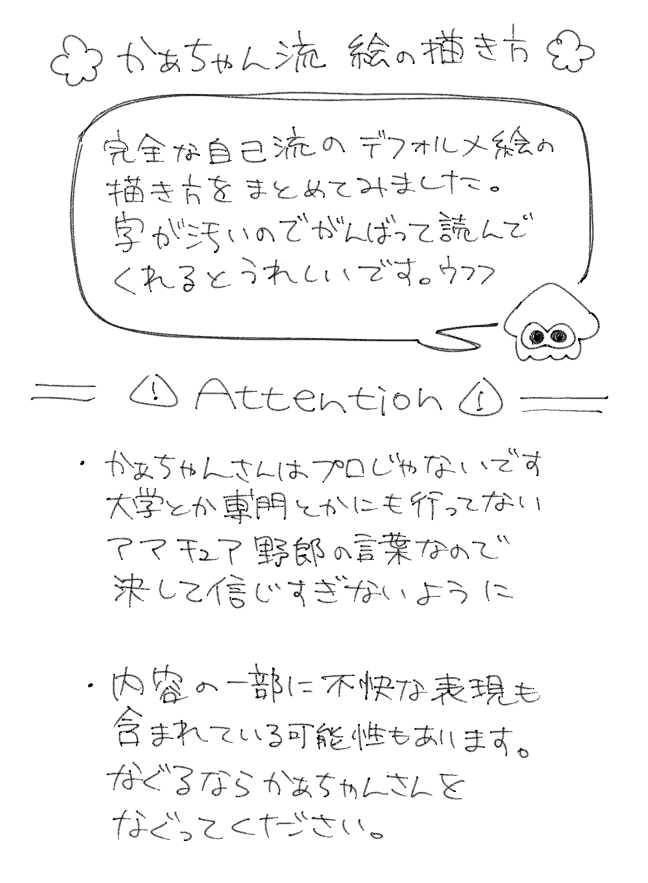 かあちゃん流 絵の描き方
完全な自己流の デフォルメ絵の
描き方をまとめてみました。
字が汚いのでがんばって読んで
くれるとうれしいです。ウフフ
! Attention !
・かあちゃんさんはプロじゃないです
大学とか専門とかにも行ってない
アマチュア野郎の言葉なので
決して信じすぎないように
・内容の一部に不快な表現も
含まれている可能性もあります。
なぐるならかあちゃんさんを
なぐってください。